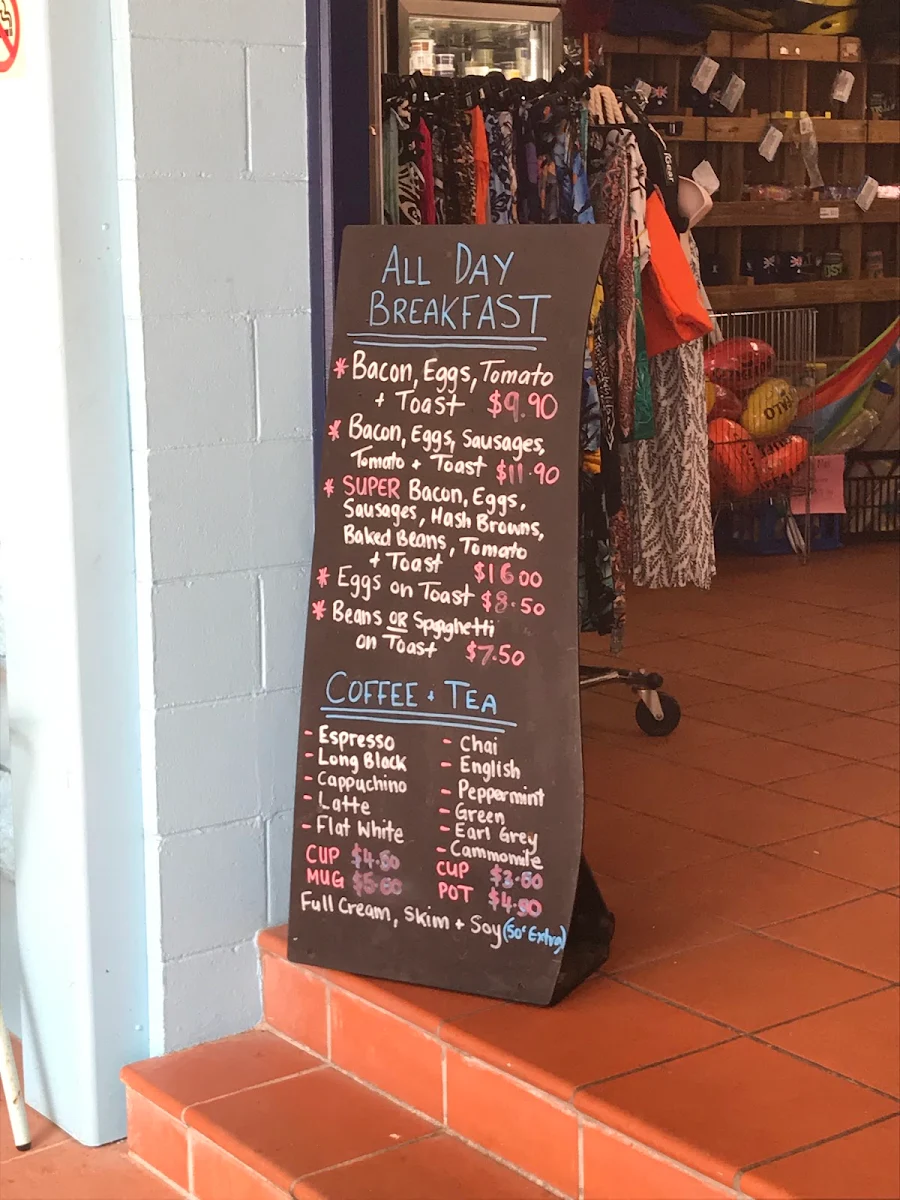 ALL DAY
BREAKFAST
* Bacon, Eggs, Tomato
+ Toast $9.90
* Bacon, Eggs, Sausages,
Tomato + Toast $11.90
* SUPER Bacon, Eggs,
Sausages, Hash Browns,
Baked Beans, Tomato
+ Toast $16.00
* Eggs on Toast $8.50
* Beans OR Spgaghetti
on Toast $7.50
COFFEE + TEA
- Espresso
- Long Black
- Cappuchino
- Latte
- Flat White
CUP
MUG
- Chai
- English
- Peppermint
- Green
- Earl Grey
- Cammomile
CUP
POT
Full Cream, Skim + Soy (50c Extra)